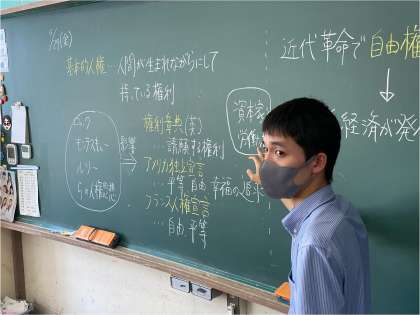 基本的人権…人間が生まれながらにして
持っている権利
ロック
モンテスキュー
ルソー
らの人権思想
影響
権利章典(英)
…請願する権利
アメリカ独立宣言
…平等 自由 幸福の追求
フランス人権宣言
…自由 平等
資本家
労働
近代革命で自由権
経済が発